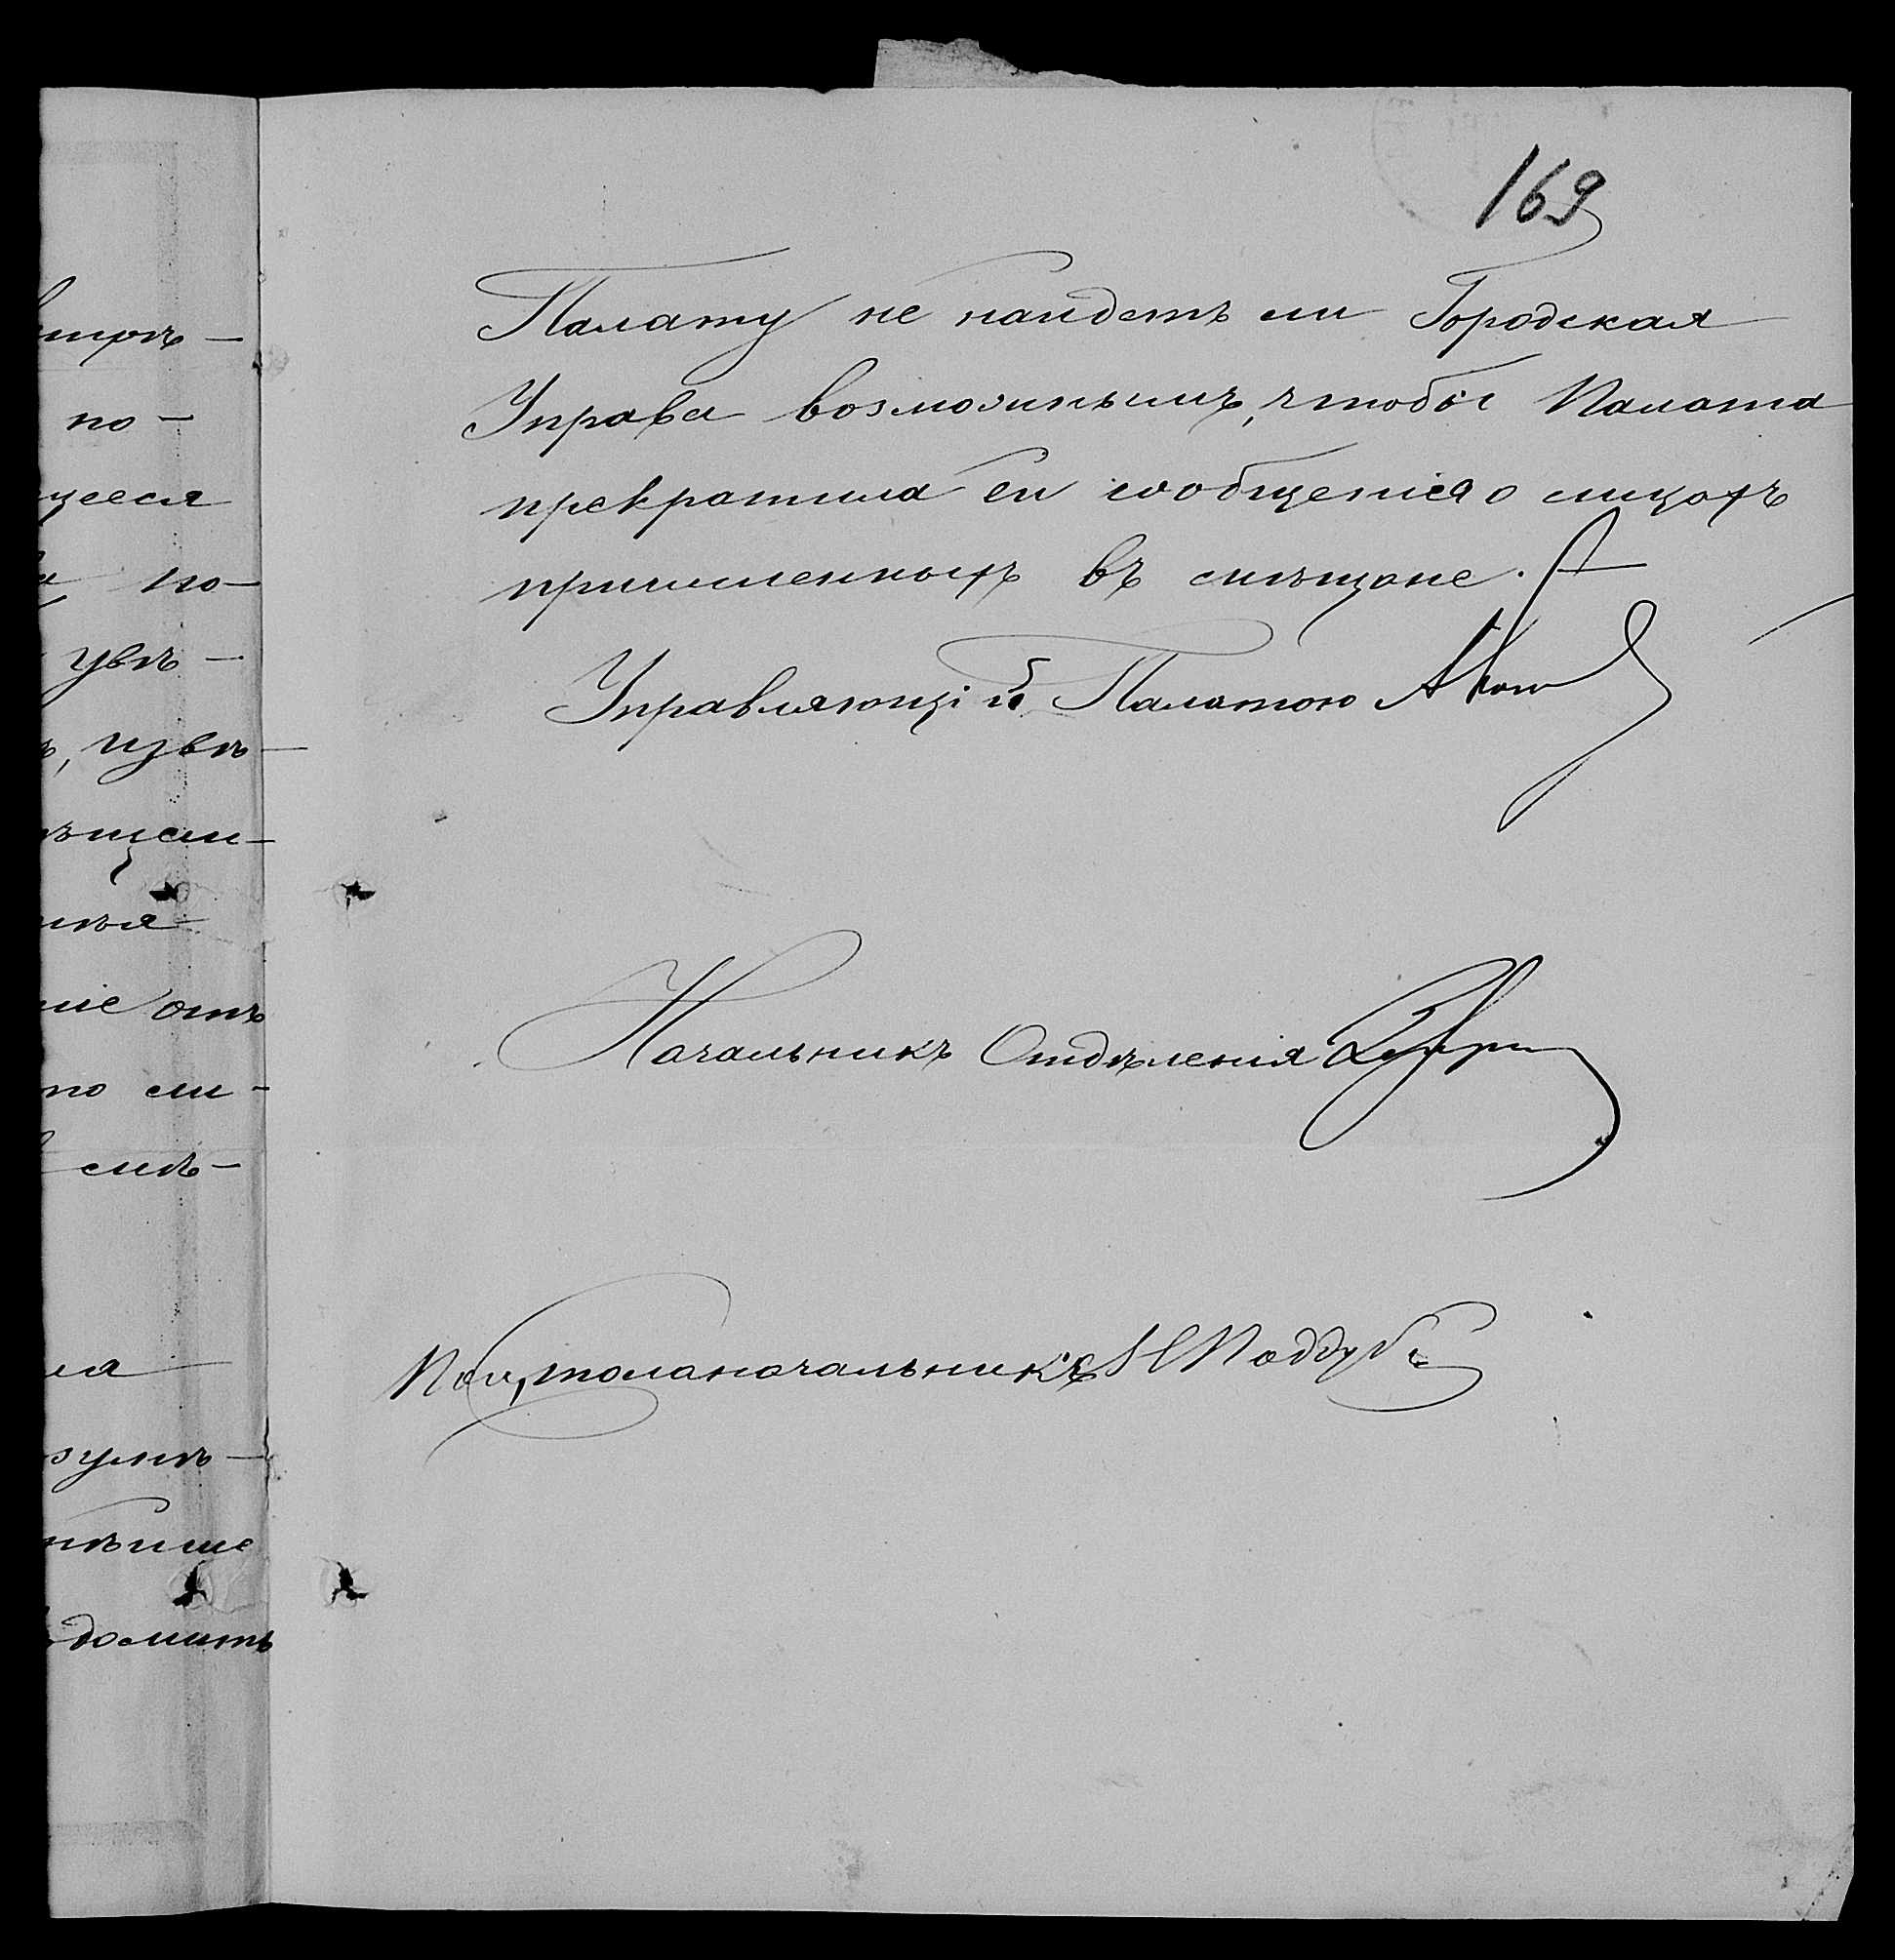 169
Палату не найдетъ ли Городская
Управа возможнымъ, чтобы Палата
прекратила ей сообщенія о лицахъ
причисленныхъ въ мѣщане.
Управляющій Палатою
Начальникъ Отдѣленія
Пом, столоначальника Н Поддуб
по-
щееся
по-
увѣ-
ѣ, извѣ-
ніе отъ
по ли-
мѣ-
зумѣ-
домить